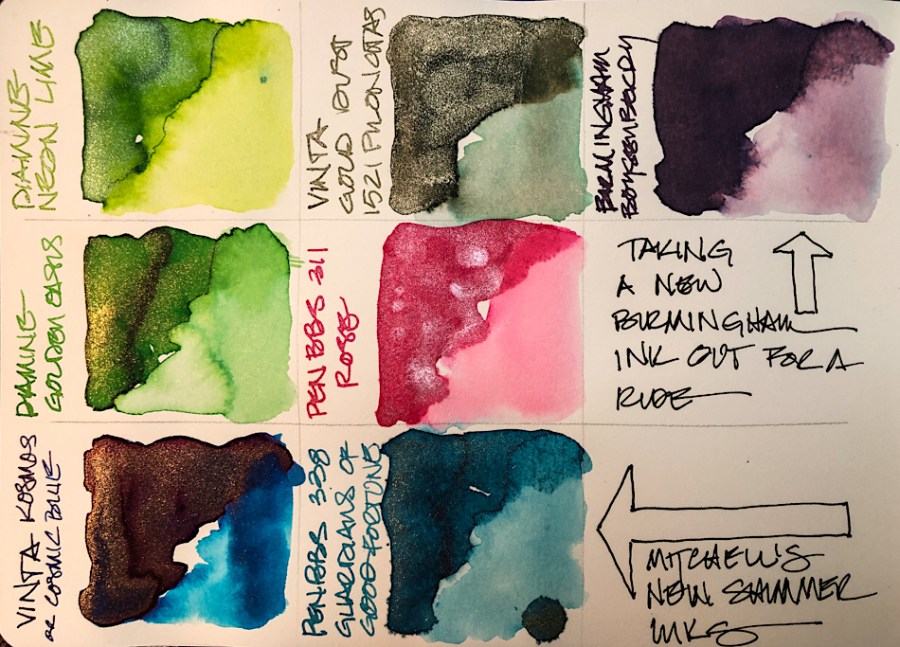 DIAMINE
NEON LIME
VINTA
GOLD DUST
1521 PILONCITAS
BIRMINGHAM
BOYSENBERRY
DIAMINE
GOLDEN OASIS
PEN BBS 311
ROSE
TAKING
A NEW
BIRMINGHAM
INK OUT FOR A
RIDE
VINTA KOSMOS
OR COSMIC BLUE
PEN BBS 328
GUARDIANS OF
GOOD FORTUNE
MITCHELL'S
NEW SHIMMER
INKS